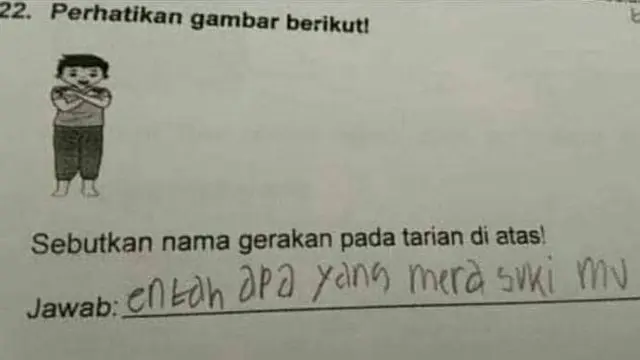 22. Perhatikan gambar berikut!
Sebutkan nama gerakan pada tarian di atas!
Jawab: entah apa yang merasuki mu